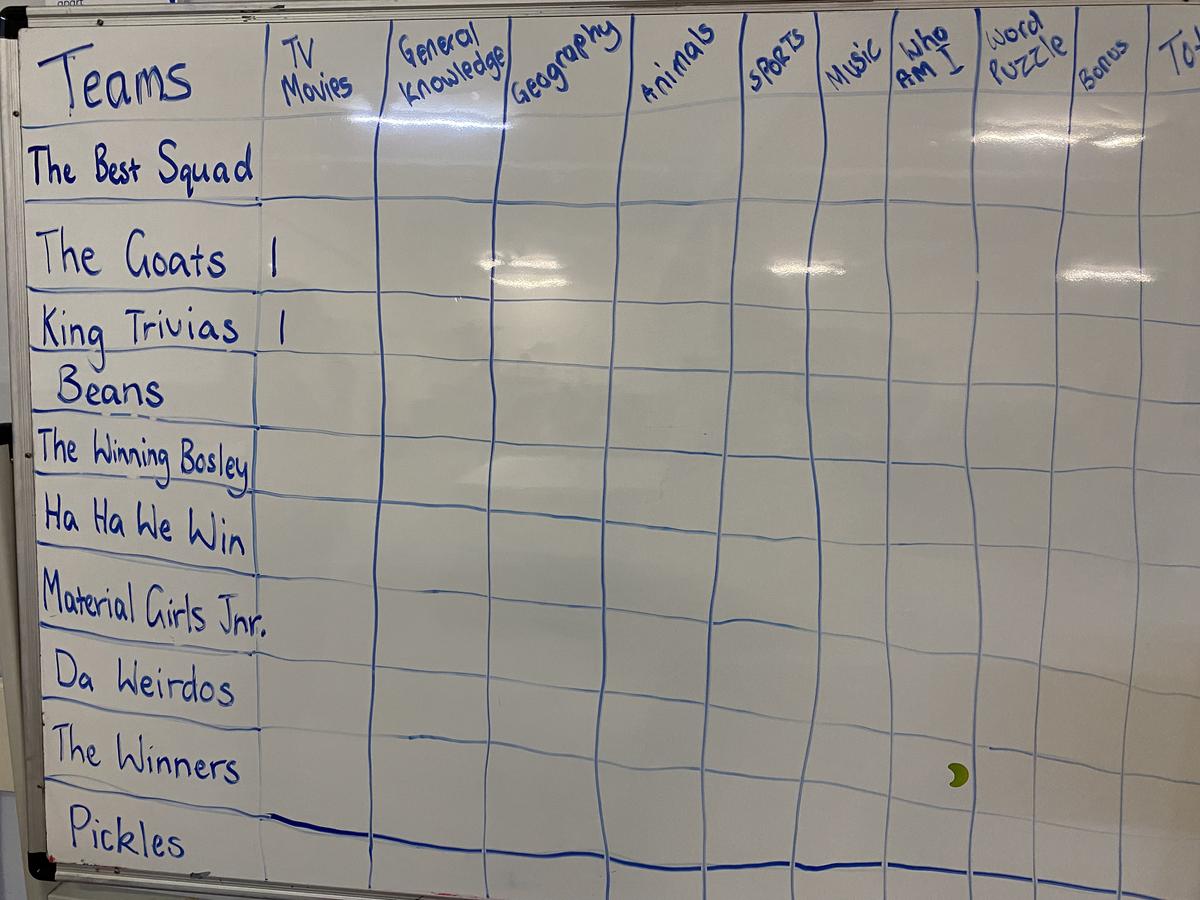 apart
Teams
TV
Movies
General
Knowledge
Geography
Animals
SPORTS
Music
Who
AM I
Word
Puzzle
Bonus
The Best Squad
The Goats 1
King Trivias 1
Beans
The Winning Bosley
Ha Ha We Win
Material Girls Jnr.
Da Weirdos
The Winners
Pickles